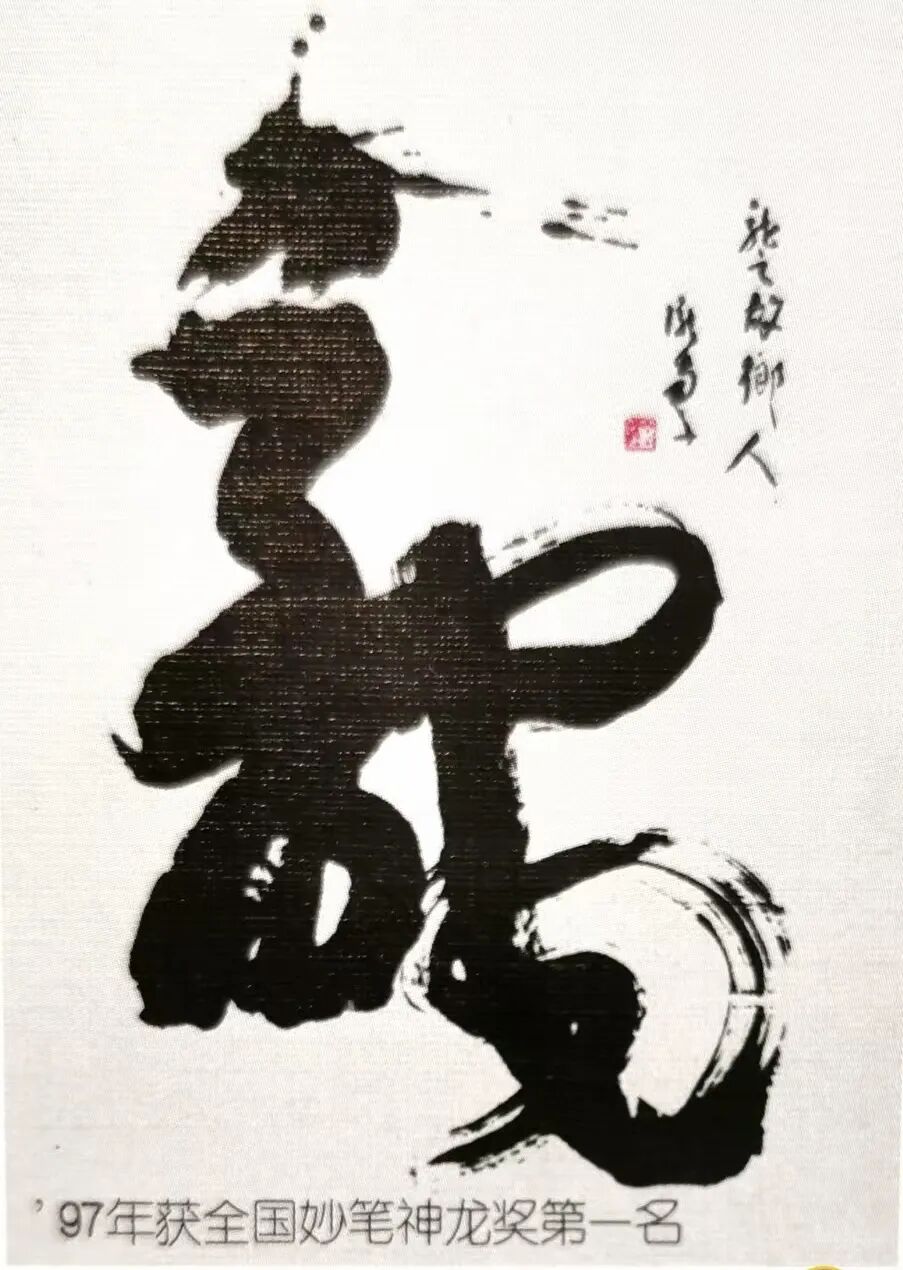 龍
龍之故鄉人
'97年获全国妙笔神龙奖第一名